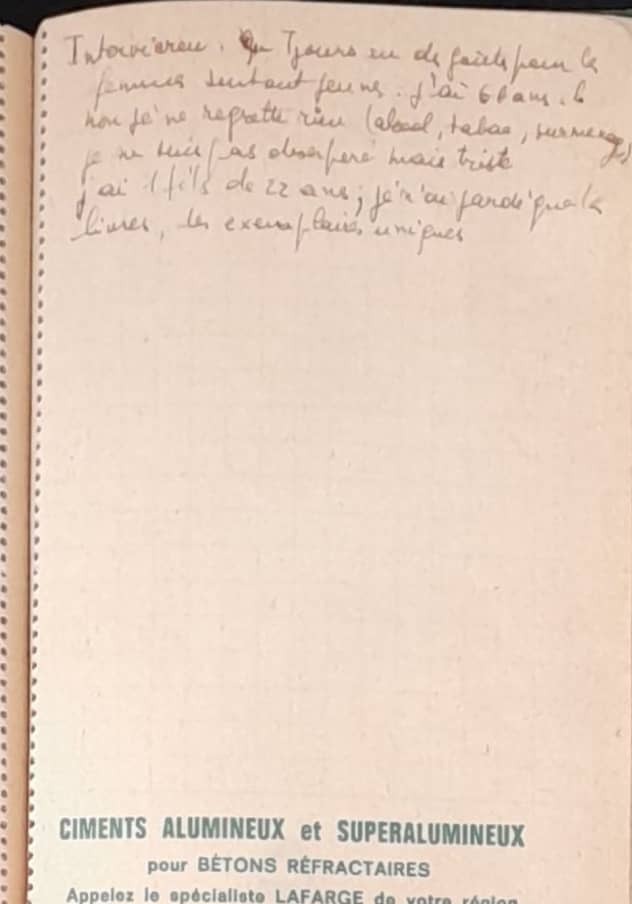 Intervieweu. Tjours eu de goûts pour les
femmes surtout jeunes. j'ai 60 ans.
non je ne regrette rien (alcool, tabac, surmenage)
je ne suis pas désespéré mais triste
j'ai 1 fils de 22 ans; je n'ai gardé que
livres, les exemplaires uniques
CIMENTS ALUMINEUX et SUPERALUMINEUX
pour BÉTONS RÉFRACTAIRES
Appelez le spécialiste LAFARGE de votre région